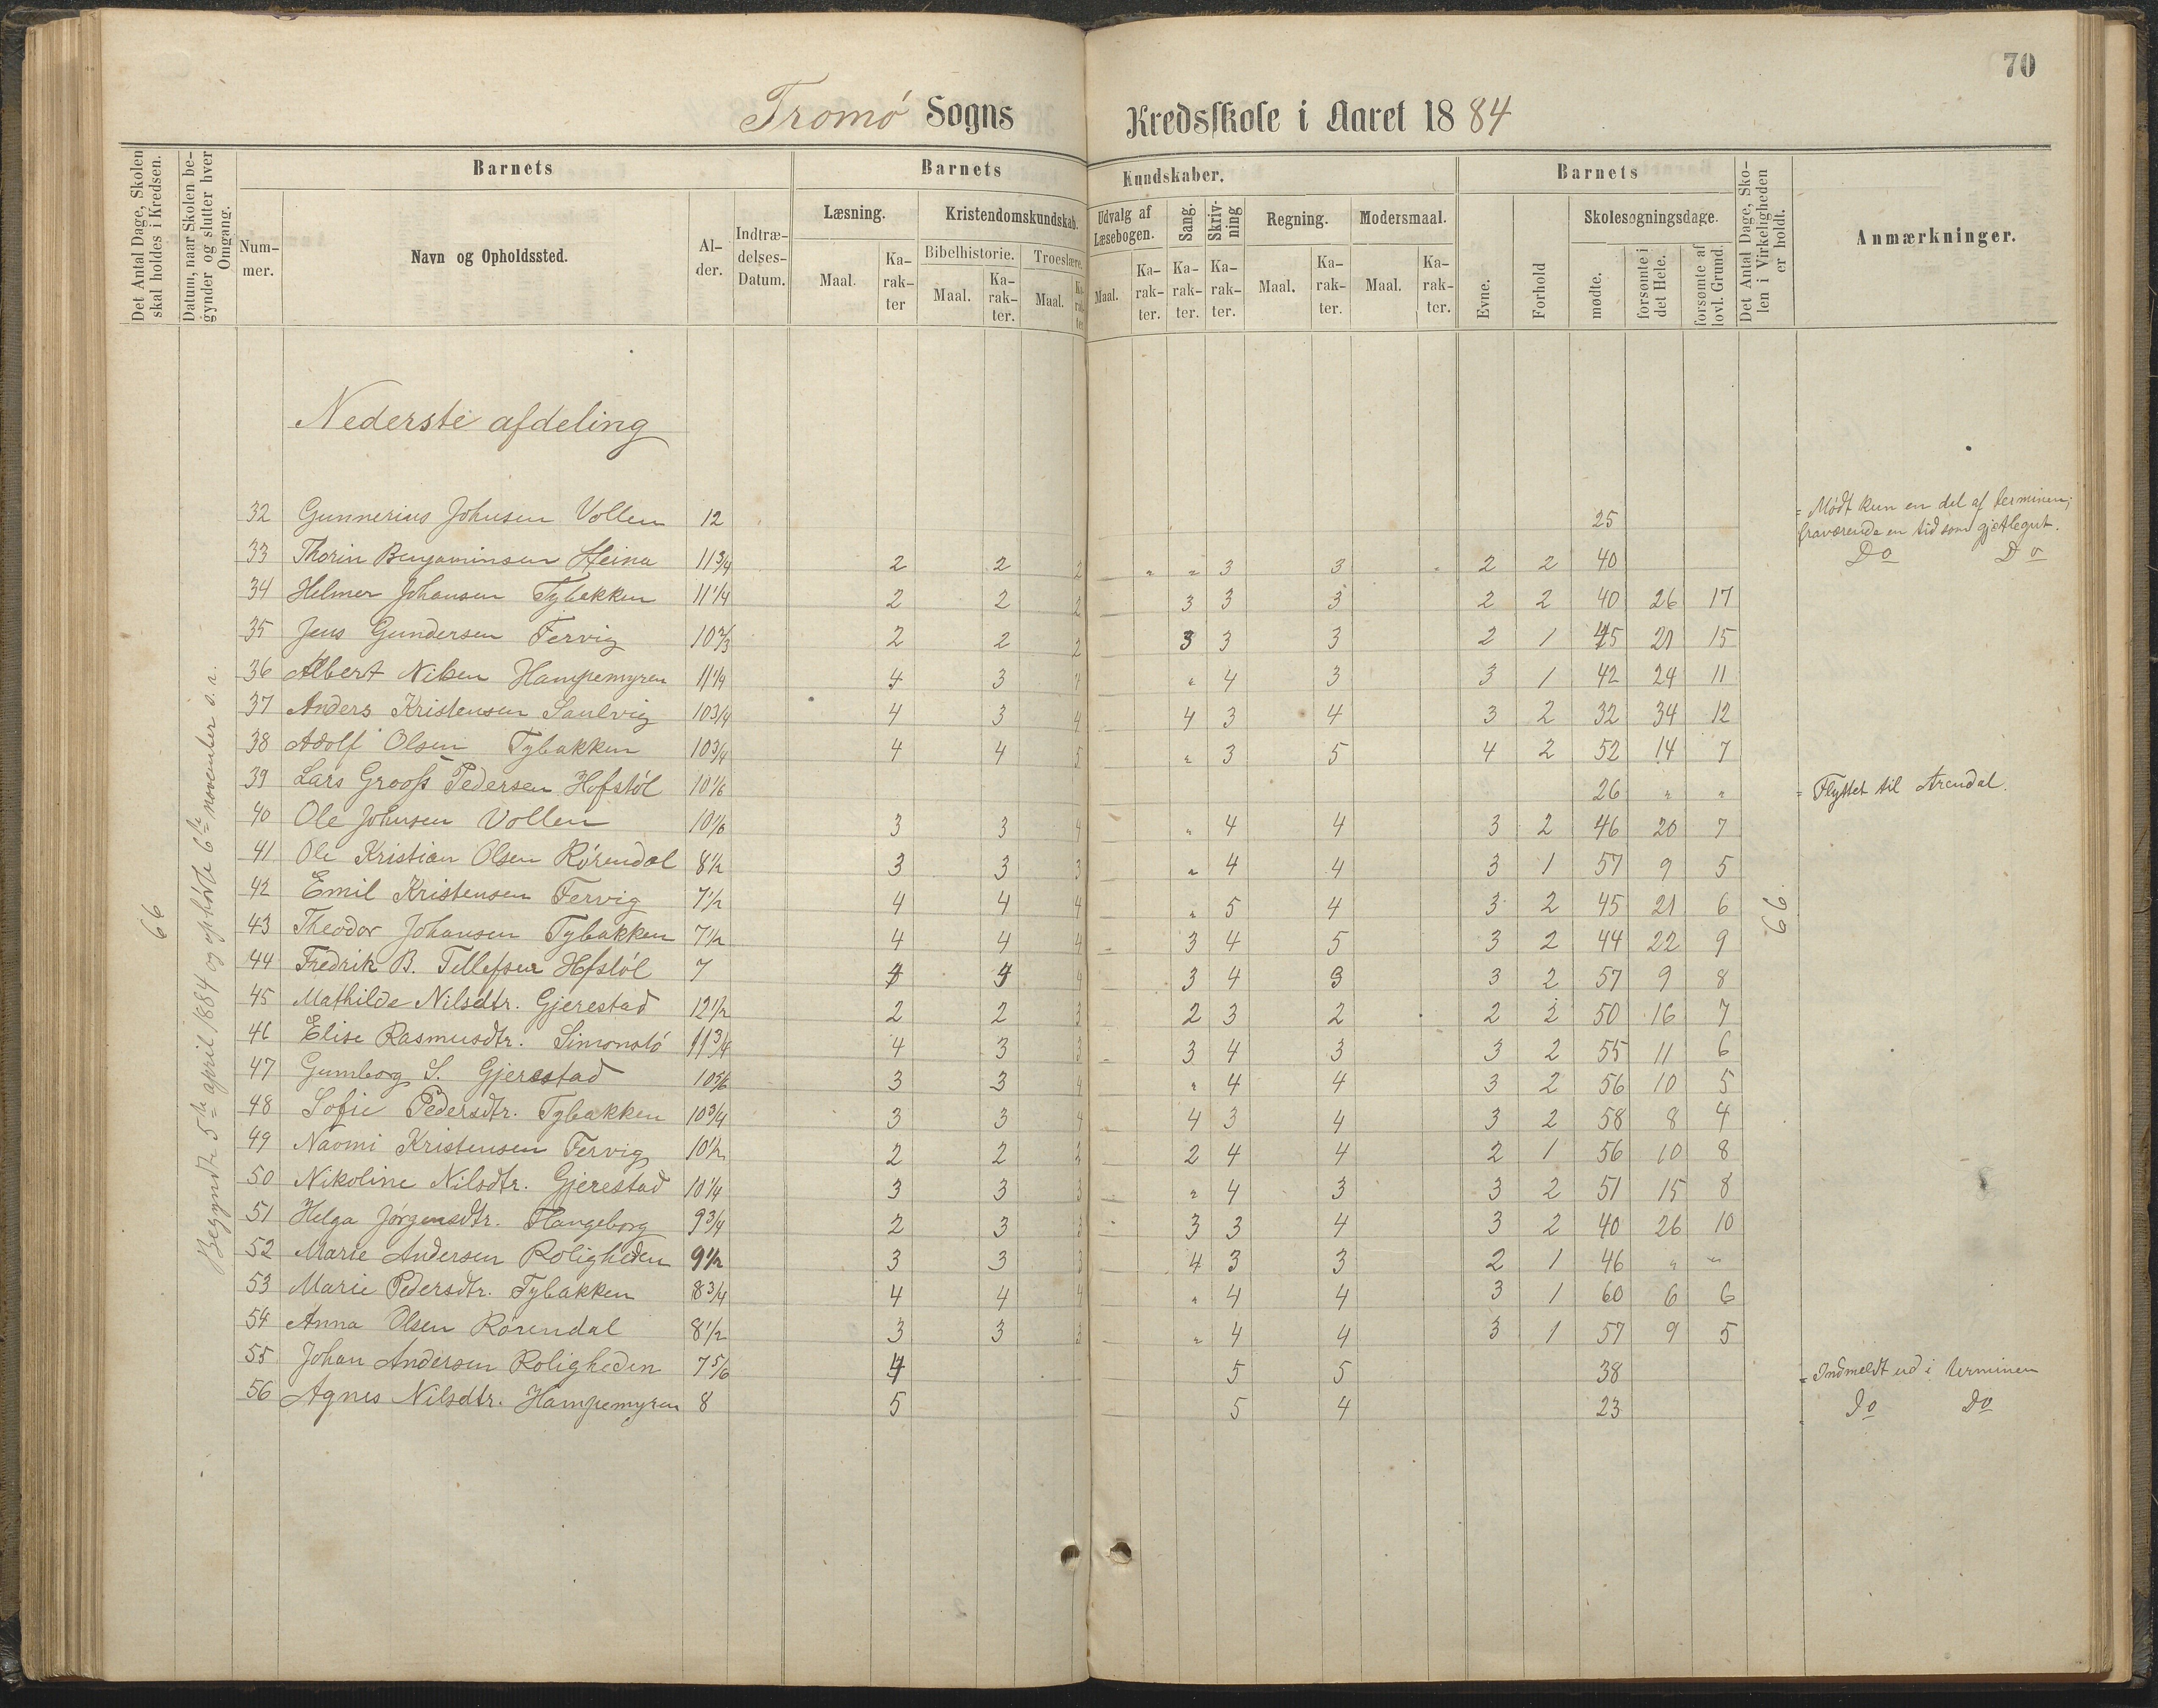 70
Tromø Sogns Kredsskole i Aaret 1884
Det Antal Dage, Skolen skal holdes i Kredsen.
Datum, naar Skolen begynder og slutter hver Omgang.
Barnets
Nummer.
Navn og Opholdssted.
Alder.
Indtrædelses-Datum.
Barnets Kundskaber.
Læsning.
Maal.
Karakter
Kristendomskundskab.
Bibelhistorie.
Maal.
Karakter.
Troeslære.
Maal.
Karakter
Udvalg af Læsebogen.
Maal.
Karakter.
Sang.
Karakter.
Skrivning
Karakter.
Regning.
Maal.
Karakter.
Modersmaal.
Maal.
Karakter.
Barnets
Evne.
Forhold
Skolesøgningsdage.
mødte.
forsømte i det Hele.
forsømte af lovl. Grund.
Det Antal Dage, Skolen i Virkeligheden er holdt.
Anmærkninger.
66
Begyndte 5te april 1884 og ophørte 6te november s. a.
66.
Nederste afdeling
32 Gunnerius Johnsen Vollen 12 25 = Mødt kun en del af terminen; fraværende en tid som gjætegut.
33 Thorin Benjaminsen Heina 11 3/4 2 2 2 " " 3 3 2 2 40 Do Do
34 Helmer Johansen Tybakken 11 1/4 2 2 2 3 3 3 2 2 40 26 17
35 Jens Gundersen Fervig 10 2/3 2 2 2 3 3 3 2 1 45 21 15
36 Albert Nilsen Hampemyren 11 1/4 4 3 4 " 4 3 3 1 42 24 11
37 Anders Kristensen Saulvig 10 3/4 4 3 4 4 3 4 3 2 32 34 12
38 Adolf Olsen Tybakken 10 3/4 4 4 5 " 3 5 4 2 52 14 7
39 Lars Grooss Pedersen Hofstøl 10 1/6 26 " " = Flyttet til Arendal.
40 Ole Johnsen Vollen 10 1/6 3 3 4 " 4 4 3 2 46 20 7
41 Ole Kristian Olsen Rørendal 8 1/2 3 3 3 " 4 4 3 1 57 9 5
42 Emil Kristensen Fervig 7 1/2 4 4 4 " 5 4 3 2 45 21 6
43 Theodor Johansen Tybakken 7 1/2 4 4 4 3 4 5 3 2 44 22 9
44 Fredrik B. Tellefsen Hfstøl 7 4 4 4 3 4 3 3 2 57 9 8
45 Mathilde Nilsdtr. Gjerestad 12 1/2 2 2 3 2 3 2 2 2 50 16 7
46 Elise Rasmusdtr. Simonstø 11 3/4 4 3 3 3 4 3 3 2 55 11 6
47 Gumborg S. Gjerestad 10 5/6 3 3 4 " 4 4 3 2 56 10 5
48 Sofie Pedersdtr. Tybakken 10 3/4 3 3 4 4 3 4 3 2 58 8 4
49 Naomi Kristensen Fervig 10 1/2 2 2 2 2 4 4 2 1 56 10 8
50 Nikoline Nilsdtr. Gjerestad 10 1/4 3 3 3 " 4 3 3 2 51 15 8
51 Helga Jørgensdtr. Flangeborg 9 3/4 2 3 3 3 3 4 3 2 40 26 10
52 Marie Andersen Roligheden 9 1/2 3 3 3 4 3 3 2 1 46 " "
53 Marie Pedersdtr. Tybakken 8 3/4 4 4 4 " 4 4 3 1 60 6 6
54 Anna Olsen Rørendal 8 1/2 3 3 3 " 4 4 3 1 57 9 5
55 Johan Andersen Roligheden 7 5/6 4 5 5 38 = Indmeldt ud i terminen
56 Agnes Nilsdtr. Hampemyren 8 5 5 4 23 Do Do